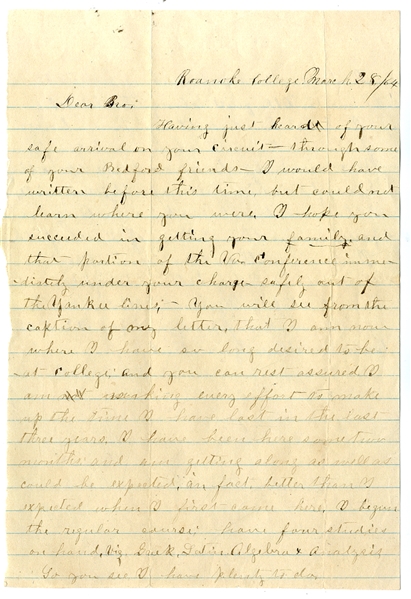 Roanoke College March 28/64
Dear Bro;
Having just heard of your
safe arrival on your circuit— through some
of your Bedford friends— I would have
written before this time, but could not
learn where you were. I hope you
succeeded in getting your family and
that portion of the Va Conference imme-
diately under your charge safely out of
the Yankee lines;— You will see from the
caption of my letter, that I am now
where I have so long desired to be—
at College: and you can rest assured I
am making every effort to make
up the time I have lost in the last
three years. I have been here some two
months and am getting along as well as
could be expected, in fact better than I
expected when I first came here. I began
the regular course; have four studies
on hand, Viz, Greek, Latin Algebra & Analysis
So you see I have plenty to do